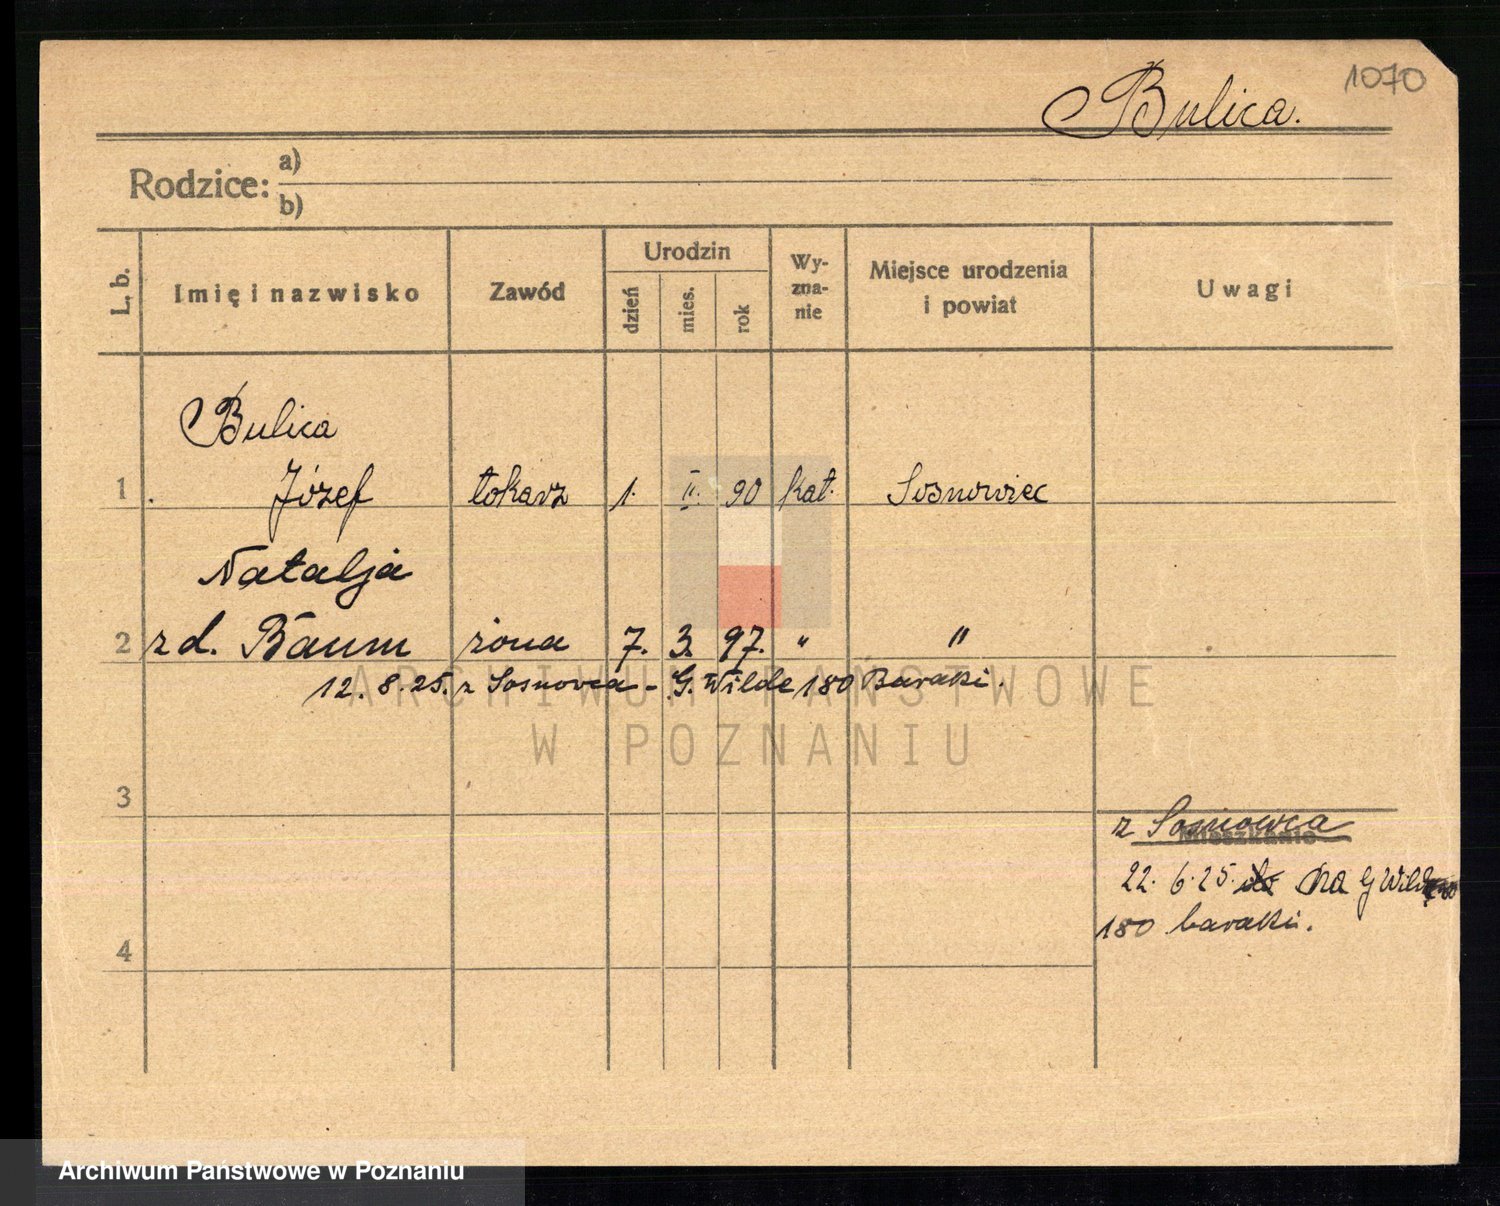 1070
Bulica.
Rodzice: a)
b)
L. b.
Imię i nazwisko
Zawód
Urodzin
dzień
mies.
rok
Wy-
zna-
nie
Miejsce urodzenia
i powiat
Uwagi
Bulica
1 Józef tokarz 1. II. 90 kat. Sosnowiec
Natalja
2 z d. Baum żona 7. 3. 97. " "
12. 8. 25. z Sosnowca - G. Wilde 180 Baraki.
ARCHIWUM PAŃSTWOWE
W POZNANIU
3
z Sosnowca
Mieszkanie
22. 6. 25. na G Wilde
180 baraki.
4
Archiwum Państwowe w Poznaniu